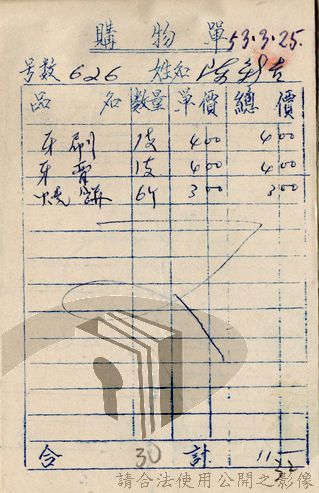 購物單 53.3.25.
号数 626 姓名
品名 数量 单價 總價
牙刷 1支 400 400
牙膏 1支 400 400
燒餅 6个 300 300
合 30 計 11
請合法使用公開之影像